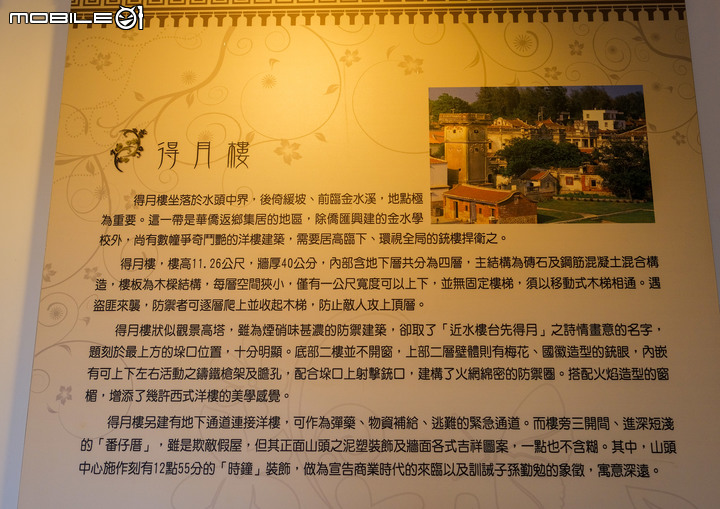 MOBILE01
得月樓
得月樓坐落於水頭中界，後倚緩坡、前臨金水溪，地點極
為重要。這一帶是華僑返鄉集居的地區，除僑匯興建的金水學
校外，尚有數幢爭奇鬥艷的洋樓建築，需要居高臨下、環視全局的銃樓捍衛之。
得月樓，樓高11.26公尺，牆厚40公分，內部含地下層共分為四層，主結構為磚石及鋼筋混凝土混合構
造，樓板為木樑結構，每層空間狹小，僅有一公尺寬度可以上下，並無固定樓梯，須以移動式木梯相通。遇
盜匪來襲，防禦者可逐層爬上並收起木梯，防止敵人攻上頂層。
得月樓狀似觀景高塔，雖為煙硝味甚濃的防禦建築，卻取了「近水樓台先得月」之詩情畫意的名字，
題刻於最上方的垛口位置，十分明顯。底部二樓並不開窗，上部二層壁體則有梅花、國徽造型的銃眼，內嵌
有可上下左右活動之鑄鐵槍架及瞻孔，配合垛口上射擊銃口，建構了火網綿密的防禦圈。搭配火焰造型的窗
楣，增添了幾許西式洋樓的美學感覺。
得月樓另建有地下通道連接洋樓，可作為彈藥、物資補給、逃難的緊急通道。而樓旁三開間、進深短淺
的「番仔厝」，雖是欺敵假屋，但其正面山頭之泥塑裝飾及牆面各式吉祥圖案，一點也不含糊。其中，山頭
中心施作刻有12點55分的「時鐘」裝飾，做為宣告商業時代的來臨以及訓誡子孫勤勉的象徵，寓意深遠。